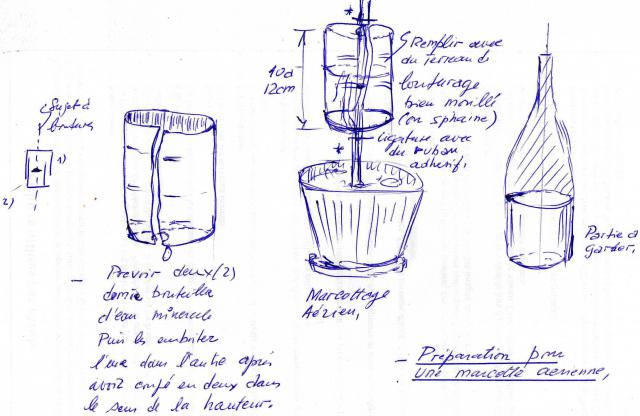 Sujet à
bouturer
1)
2)
10 à
12cm
*
Remplir avec
du terreau de
bouturage
bien mouillé
(ou sphaine)
Ligature avec
du ruban
adhésif,
*
Partie à
garder,
- Prevoir deux (2)
demie bouteille
d'eau minerale
Puis les emboiter
l'une dans l'autre après
avoir coupé en deux dans
le sens de la hauteur.
Marcottage
Aérien,
- Préparation pour
une marcotte aerienne,